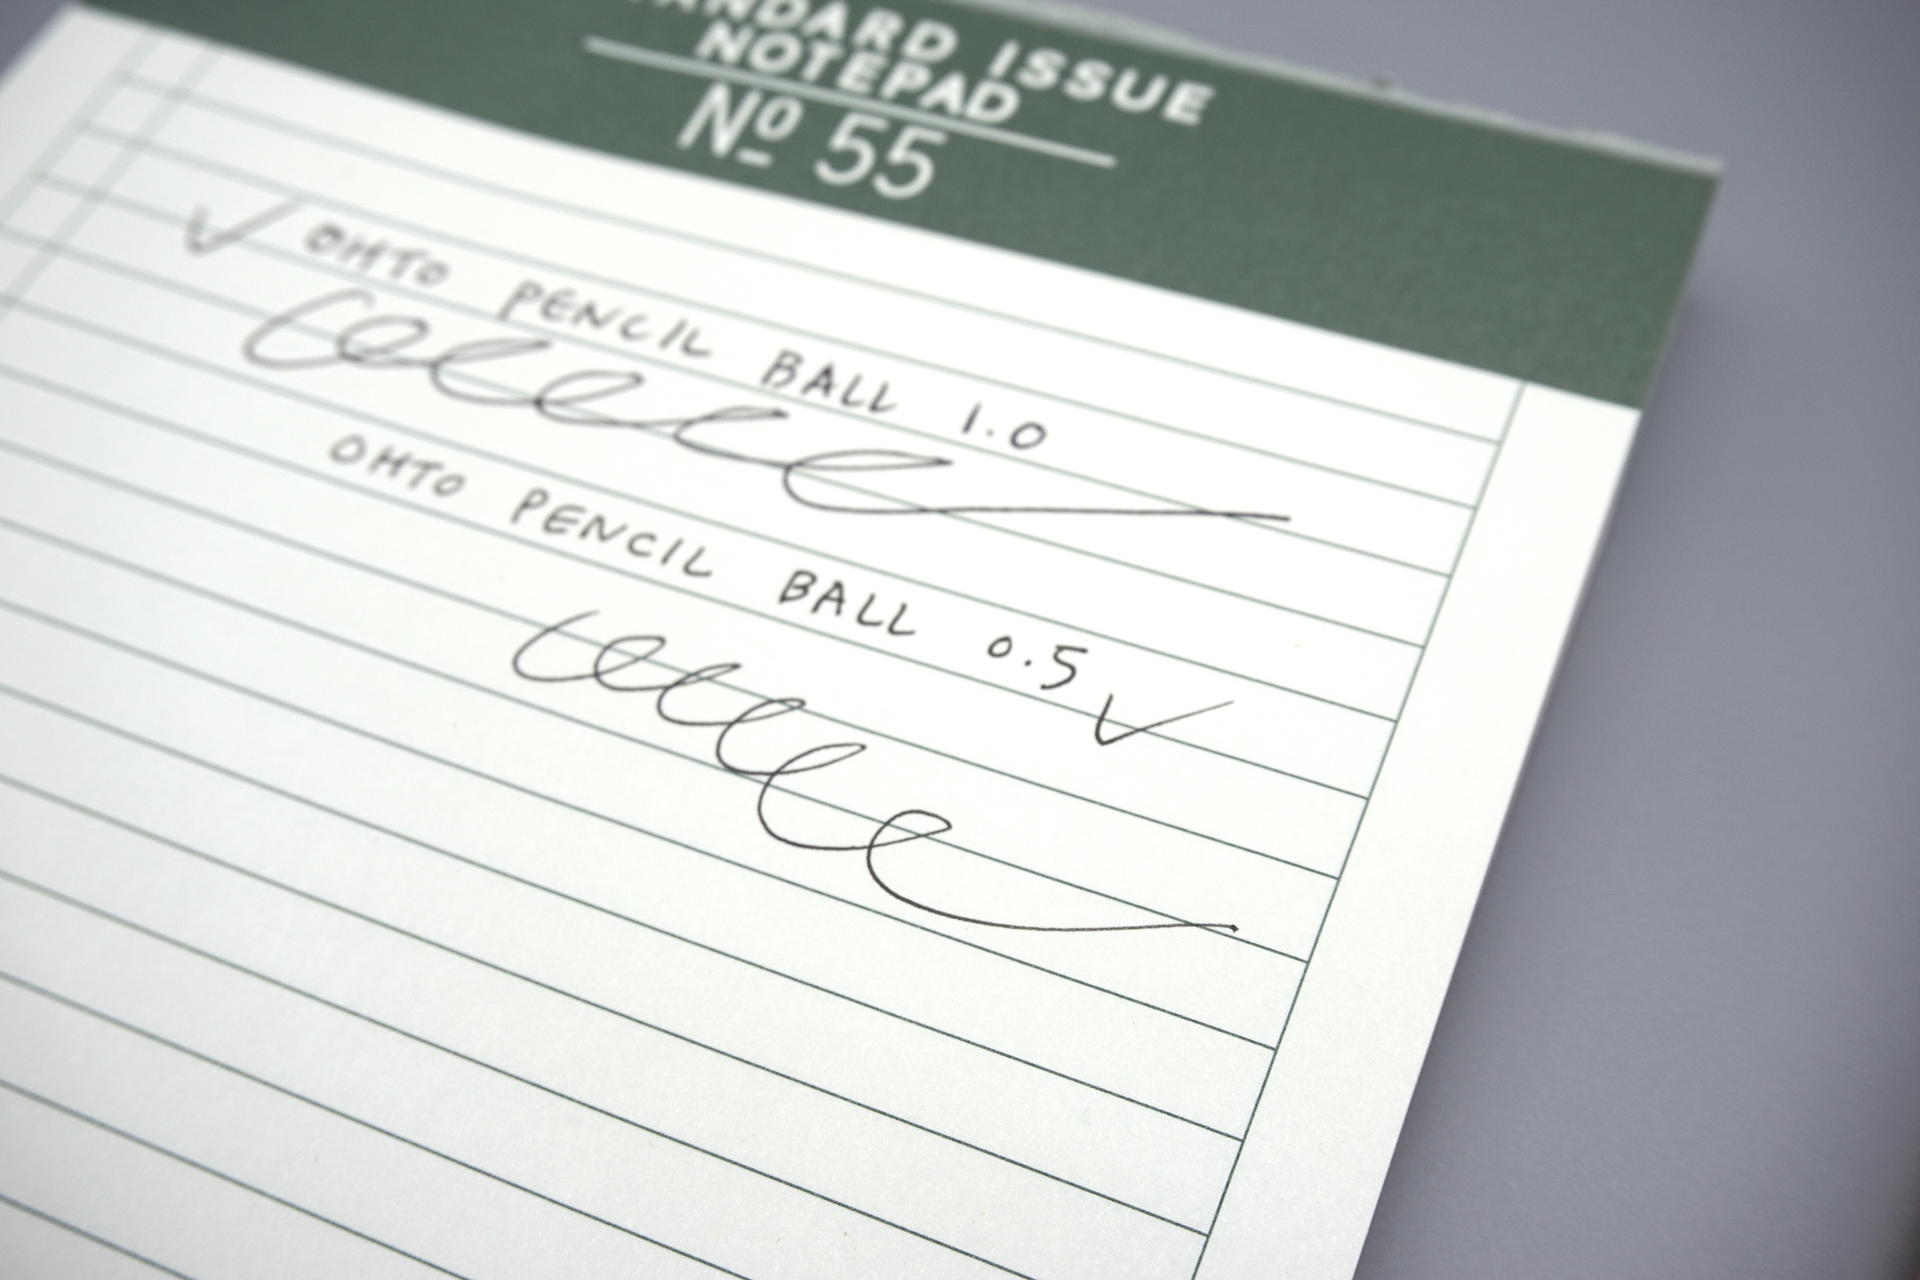 STANDARD ISSUE
NOTEPAD
Nº 55
✓ OHTO PENCIL BALL 1.0
OHTO PENCIL BALL 0.5 ✓